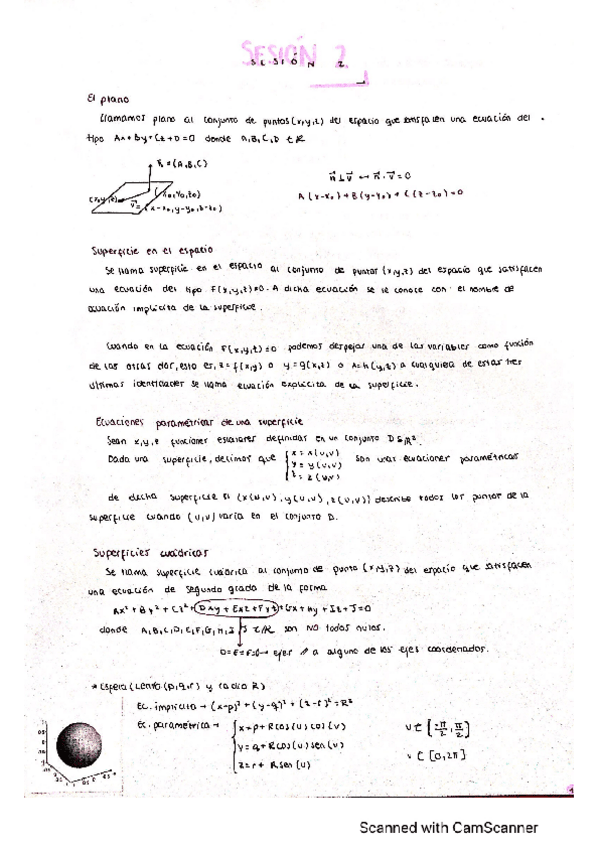 SESIÓN 2
El plano
Llamamos plano al conjunto de puntos (x,y,z) del espacio que satisfacen una ecuación del
tipo Ax+By+Cz+D=0 donde A,B,C,D ∈ ℝ
n⃗ = (A,B,C)
n⃗ ⊥ v⃗ ↔ n⃗ · v⃗ = 0
(x,y,z) (x₀,y₀,z₀)
A(x-x₀)+B(y-y₀)+C(z-z₀)=0
v⃗ = (x-x₀, y-y₀, z-z₀)
Superficie en el espacio
Se llama superficie en el espacio al conjunto de puntos (x,y,z) del espacio que satisfacen
una ecuación del tipo F(x,y,z)=0. A dicha ecuación se le conoce con el nombre de
ecuación implícita de la superficie.
Cuando en la ecuación F(x,y,z)=0 podemos despejar una de las variables como función
de las otras dos, esto es, z=f(x,y) o y=g(x,z) o x=h(y,z) a cualquiera de estas tres
últimas identidades se llama ecuación explícita de la superficie.
Ecuaciones paramétricas de una superficie
Sean x,y,z funciones escalares definidas en un conjunto D⊆ℝ².
Dada una superficie, decimos que { x = x(u,v) y = y(u,v) z = z(u,v) son unas ecuaciones paramétricas
de dicha superficie si (x(u,v), y(u,v), z(u,v)) describe todos los puntos de la
superficie cuando (u,v) varía en el conjunto D.
Superficies cuádricas
Se llama superficie cuádrica al conjunto de punto (x,y,z) del espacio que satisfacen
una ecuación de segundo grado de la forma
Ax²+By²+Cz²+Dxy+Exz+Fyz+Gx+Hy+Iz+J=0
donde A,B,C,D,E,F,G,H,I,J ∈ ℝ son NO todos nulos.
D=E=F=0→ ejes // a alguno de los ejes coordenados.
* Esfera (Centro (p,q,r) y radio R)
Ec. implícita → (x-p)²+(y-q)²+(z-r)²=R²
Ec. paramétrica → { x=p+Rcos(u)cos(v) u ∈ [-π/2, π/2]
y=q+Rcos(u)sen(v)
z=r+Rsen(u) v ∈ [0,2π]
1
Scanned with CamScanner